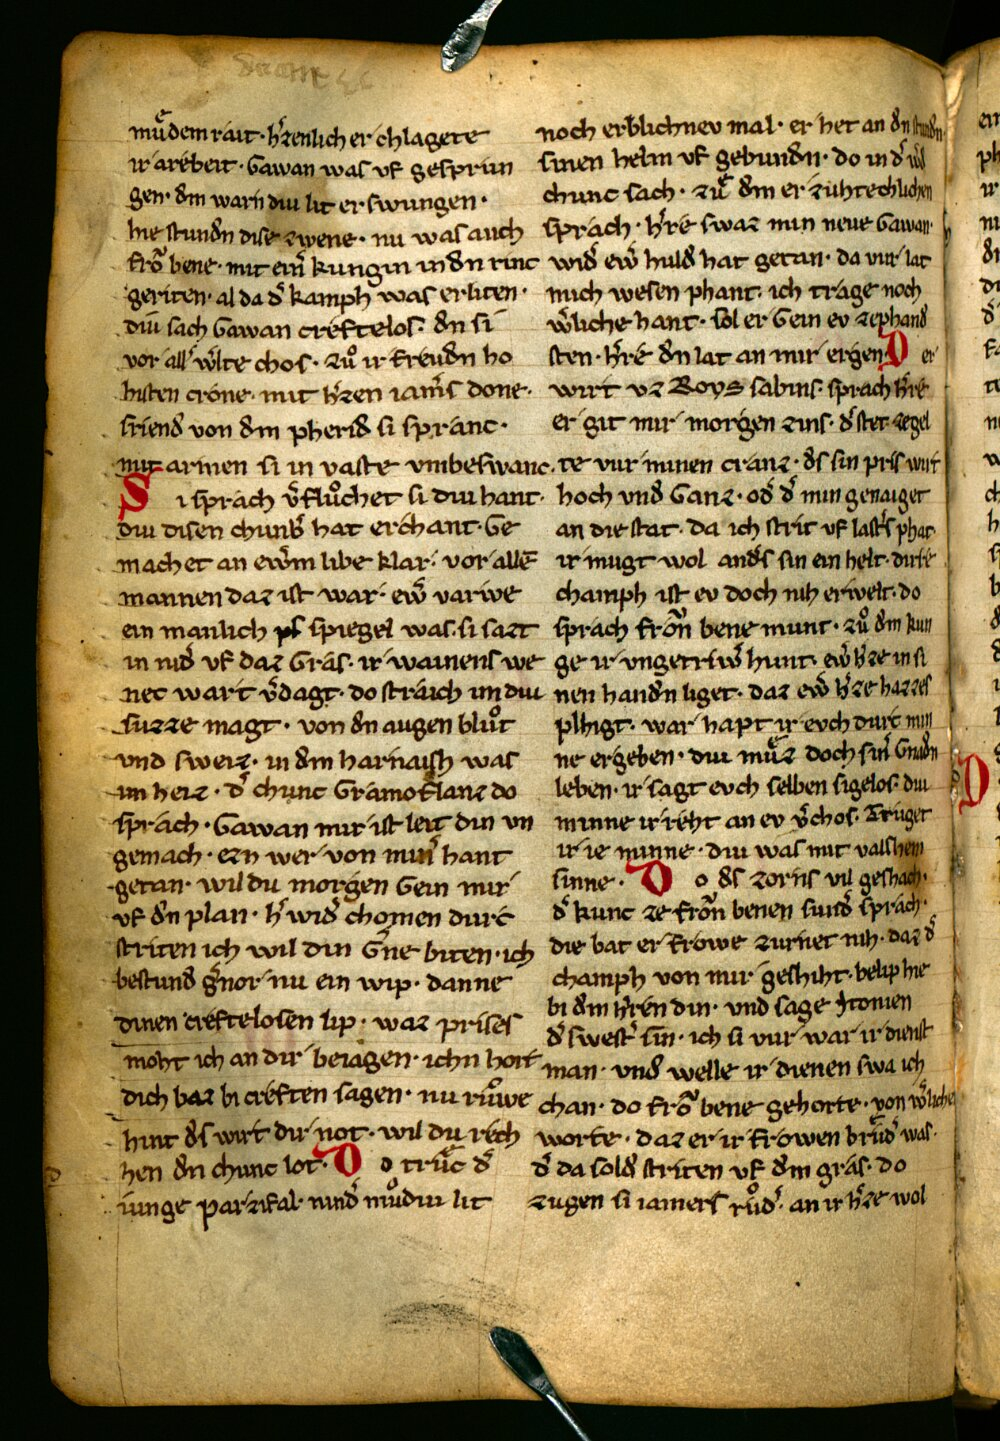 muͤdem rait· hʼzenlich er chlagete
ir arebeit· Gawan was vf gesprun
gen· dm warn diu lit er swungen·
hie stundn dise zwene· nu was auch
frō bene· mit eīm kungin in dn rinc
geriten· al da dʼ kamph was erliten·
diu sach Gawan creftelos· dn si
vor allʼ wʼlte chos· zuͦ ir freudn ho
histen crone· mit hʼzen iamʼs done·
sriend von dm pherid si spranc·
mit armen si in vaste vmbeswanc·
Si sprach vʼfluͦchet si diu hant·
diu disen chunbʼ hat erchant· Ge
machet an ewʼm libe klar· vor allē
mannen daz ist war· ewʼ varwe
ein manlich spiegel was· si sazt
in nidʼ vf daz Gras· ir wainens we
nec wart vʼdagt· do strauch im diu
suzze magt· von dn augen bluͦt
vnd sweiz· in dm harnaisch was
im heiz· dʼ chunc Gramoflanz do
sprach· Gawan mir ist leit din vn
gemach· ezn wer von minʼ hant
getan· wil du morgen Gein mir
vf dn plan· hʼ widʼ chomen durc
striten ich wil din Gʼne biten· ich
bestund gʼnor nu ein wip· danne
dinen creftelosen lip· waz prises
moht ich an dir beiagen· ichn hort
dich baz bi creften sagen· nu ruͦwe
hint ds wirt dir not· wil du rech
hen dn chunc lot· Do truͤc dʼ
iunge parzifal· nindʼ muͦdiu lit
noch erblichnev mal· er het an dn stundn
sinen helm vf gebundn· do in dʼ wʼd
chunc sach· zuͤ dm er zuhtechlichen
sprach· hʼre swaz min neue Gawan·
widʼ ewʼ huld hat getan· da vur lat
mich wesen phant· ich trage noch
wʼliche hant· sol er Gein ev zephand
sten· hʼre dn lat an mir ergen Der
wirt vz Roys sabins· sprach hʼre
er git mir morgen zins· dʼ stet zegel
te vur minen cranz· ds sin pris wirt
hoch vnd Ganz· odʼ dʼ min genaiget
an die stat· da ich strit vf lastʼs phat
ir mugt wol andʼs sin ein helt· dirre
champh ist ev doch niht erwelt· do
sprach frōn bene munt· zuͦ dm kun
ge ir vngetriwʼ hunt· ewʼ hʼze in si
nen handn liget· daz ewʼ hʼze hazzes
phligt· war hapt ir evch durc min
ne ergeben· diu muͤz doch sinʼ Gnadn
leben· ir sagt evch selben sigelos· diu
minne ir reht an ev vʼchos· Truget
ir ie minne· diu was mit valshem
sinne· Do ds zornis vil geshach·
dʼ kunc ze frōn benen sundʼ sprach·
die bat er frowe zurnet nih· daz dʼ
champh von mir geshiht· belip hie
bi dm hʼren din· vnd sage ytonien
dʼ swestʼ sin· ich si vur war ir dienst
man· vnd welle ir dienen swa ich
chan· do frō bene gehorte· von wʼlichē
worte· daz er ir frowen bruͤdʼ was·
dʼ da sold striten vf dm gras· do
zugen si iamers ruͦdʼ· an ir hʼze wol